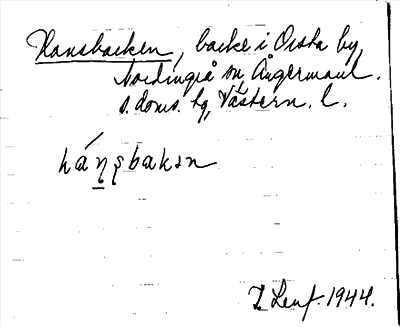 Hansbacken, backe i Orsta by,
Nordingrå sn, Ångermanl.
s. doms. hg, Västern. l.
hánsbakən
1944.